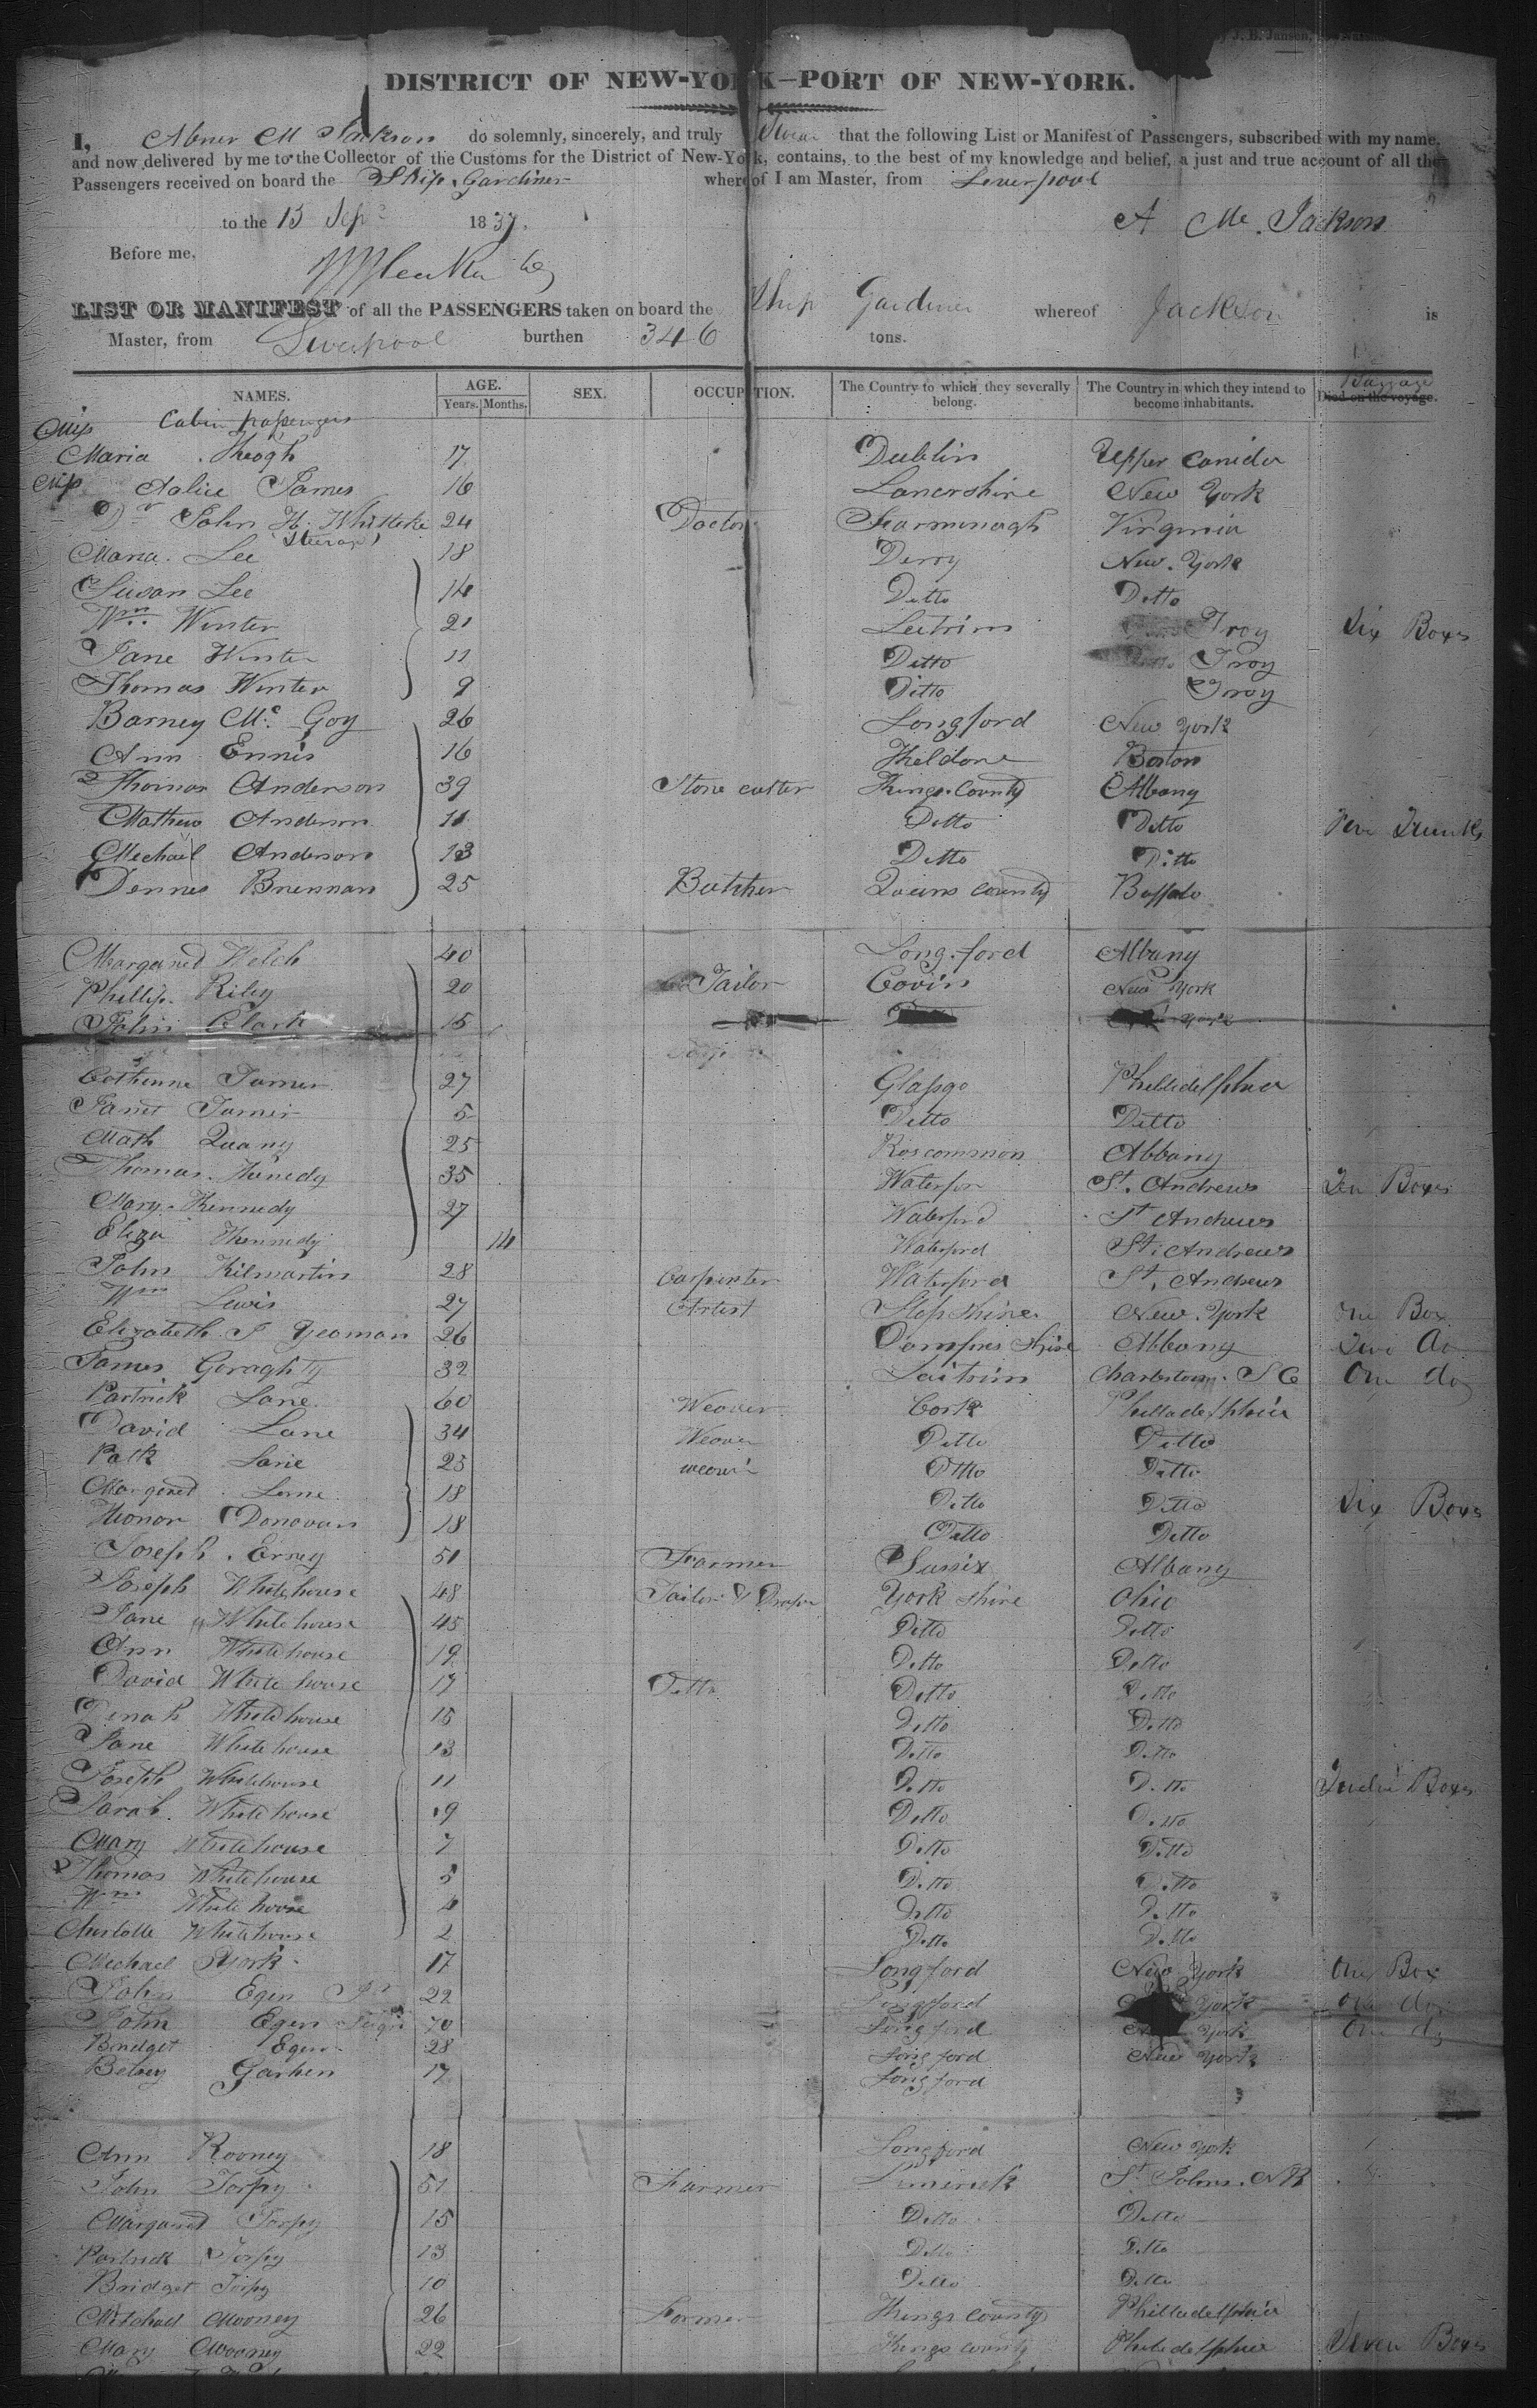 by J. B. Jansen,
DISTRICT OF NEW-YORK—PORT OF NEW-YORK.
I, Abner M Jackson do solemnly, sincerely, and truly Swear that the following List or Manifest of Passengers, subscribed with my name,
and now delivered by me to the Collector of the Customs for the District of New-York, contains, to the best of my knowledge and belief, a just and true account of all the
Passengers received on board the Ship Gardiner whereof I am Master, from Liverpool
to the 13 Sepr 1837. A M. Jackson
Before me,
LIST OR MANIFEST of all the PASSENGERS taken on board the Ship Gardiner whereof Jackson is
Master, from Liverpool burthen 346 tons.
NAMES. AGE. Years. Months. SEX. OCCUPATION. The Country to which they severally belong. The Country in which they intend to become inhabitants. Died on the voyage. Baggage
Cabin passengers
Maria Kheogh 17 Dublin Upper Canida
Aalice James 16 Lancrshire New York
Dr John H. Whitteke 24 Doctor Farminagh Virginia
(Steerage)
Maria Lee 18 Derry New York
Susan Lee 14 Ditto Ditto
Wm Winter 21 Leitrim Troy Six Boxes
Jane Winter 11 Ditto Troy
Thomas Winter 9 Ditto Troy
Barney Mc Goy 26 Longford New York
Ann Ennis 16 Kheldare Boston
Thomas Anderson 39 Stone cutter Kings County Albany
Mathew Anderson 11 Ditto Ditto Trunks
Mechael Anderson 13 Ditto Ditto
Dennes Brennan 25 Butcher Queens county Buffalo
Margared Welch 40 Longford Albany
Phillip Riley 20 Tailor Covin New York
John Clark 15 York
Cathenne Turner 27 Glasgo Philledelphia
Janet Turner 5 Ditto Ditto
Math Quany 25 Roscommon Albany
Thomas Kenedy 35 Waterfor St. Andrews Ten Boxes
Mary Kennedy 27 Waterford St Andrews
Eliza Kennedy 14 Waterford St Andrews
John Kilmartin 28 Carpenter Waterford St. Andrews
Wm Lewis 27 Artist Slopshire New York One Box
Elizabeth J Yeoman 26 Domfres Shire Albany Two do
James Goraghty 32 Laitrim Charlestown S C One do
Partrick Lane 60 Weaver Cork Philladelphia
David Lane 34 Weaver Ditto Ditto
Patk Lane 23 weaver Ditto Ditto
Margared Lane 18 Ditto Ditto Six Boxes
Honor Donovan 18 Ditto Ditto
Joseph Erney 51 Farmer Sussix Albany
Joseph Whitehouse 48 Tailor & Draper York shire Ohio
Jane Whitehouse 45 Ditto Ditto
Ann Whitehouse 19 Ditto Ditto
David White house 17 Ditto Ditto Ditto
Dinah Whitehouse 15 Ditto Ditto
Jane Whitehouse 13 Ditto Ditto
Joseph Whitehouse 11 Ditto Ditto Boxes
Sarah Whitehouse 9 Ditto Ditto
Mary Whitehouse 7 Ditto Ditto
Thomas Whitehouse 5 Ditto Ditto
Wm White house 4 Ditto Ditto
Charlotte Whitehouse 2 Ditto Ditto
Mechael York 17 Longford New York One Box
John Egen Jr 22 Longford York One do
John Egen 70 Longford York One do
Bridget Egen 28 Longford New York
Betsey Garhen 17 Longford
Ann Rooney 18 Longford New York
John Torpy 51 Farmer Limerick St Johns. NB
Margared Torpy 15 Ditto Ditto
Partrick Torpy 13 Ditto Ditto
Bridget Torpy 10 Ditto Ditto
Mitchael Mooney 26 Farmer Kings county Philladelphia
Mary Mooney 22 Kings county Philedelphia Seven Boxes